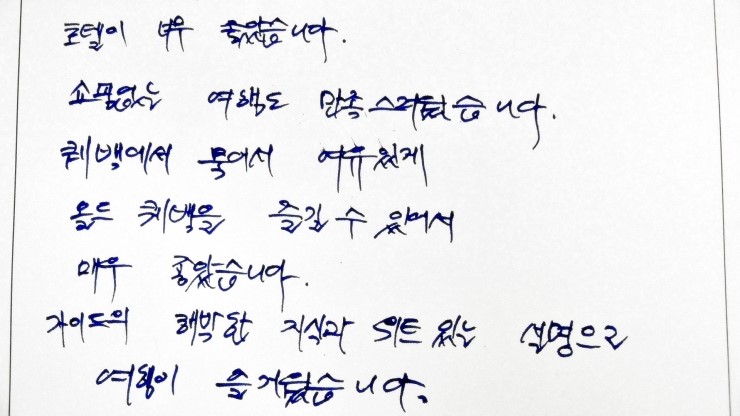 호텔이 매우 좋았습니다.
쇼핑없는 여행도 만족스러웠습니다.
퀘백에서 묵어서 여유있게
올드 퀘백을 즐길 수 있어서
매우 좋았습니다.
가이드의 해박한 지식과 위트 있는 설명으로
여행이 즐거웠습니다.